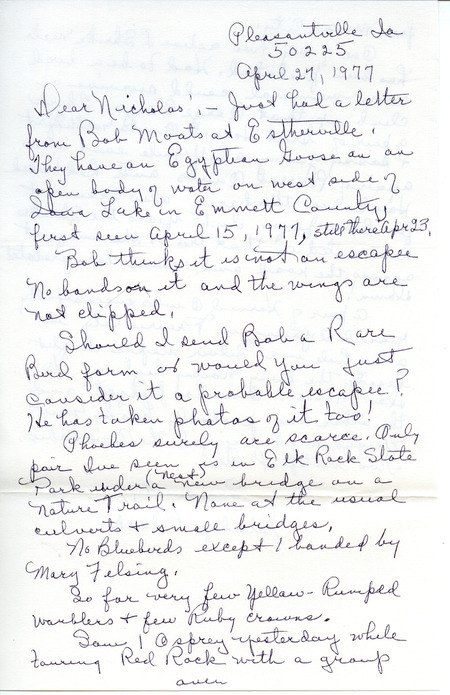 Pleasantville Ia
50225
April 27, 1977
Dear Nicholas', - Just had a letter
from Bob Moats at Estherville.
They have an Egyptian Goose on an
open body of water on west side of
Iowa Lake in Emmett County,
first seen April 15, 1977, still there Apr 23.
Bob thinks it is not an escapee
No bands on it and the wings are
not clipped.
Should I send Bob a Rare
Bird form or would you just
consider it a probable escapee?
He has taken photos of it too!
Phoebes surely are scarce. Only
pair Ive seen is in Elk Rock State
Park under a (nest) new bridge on a
nature Trail. None at the usual
culverts & small bridges.
No Bluebirds except 1 banded by
Mary Felsing.
So far very few Yellow-Rumped
warblers & few Ruby crowns.
Saw 1 Osprey yesterday while
touring Red Rock with a group
over